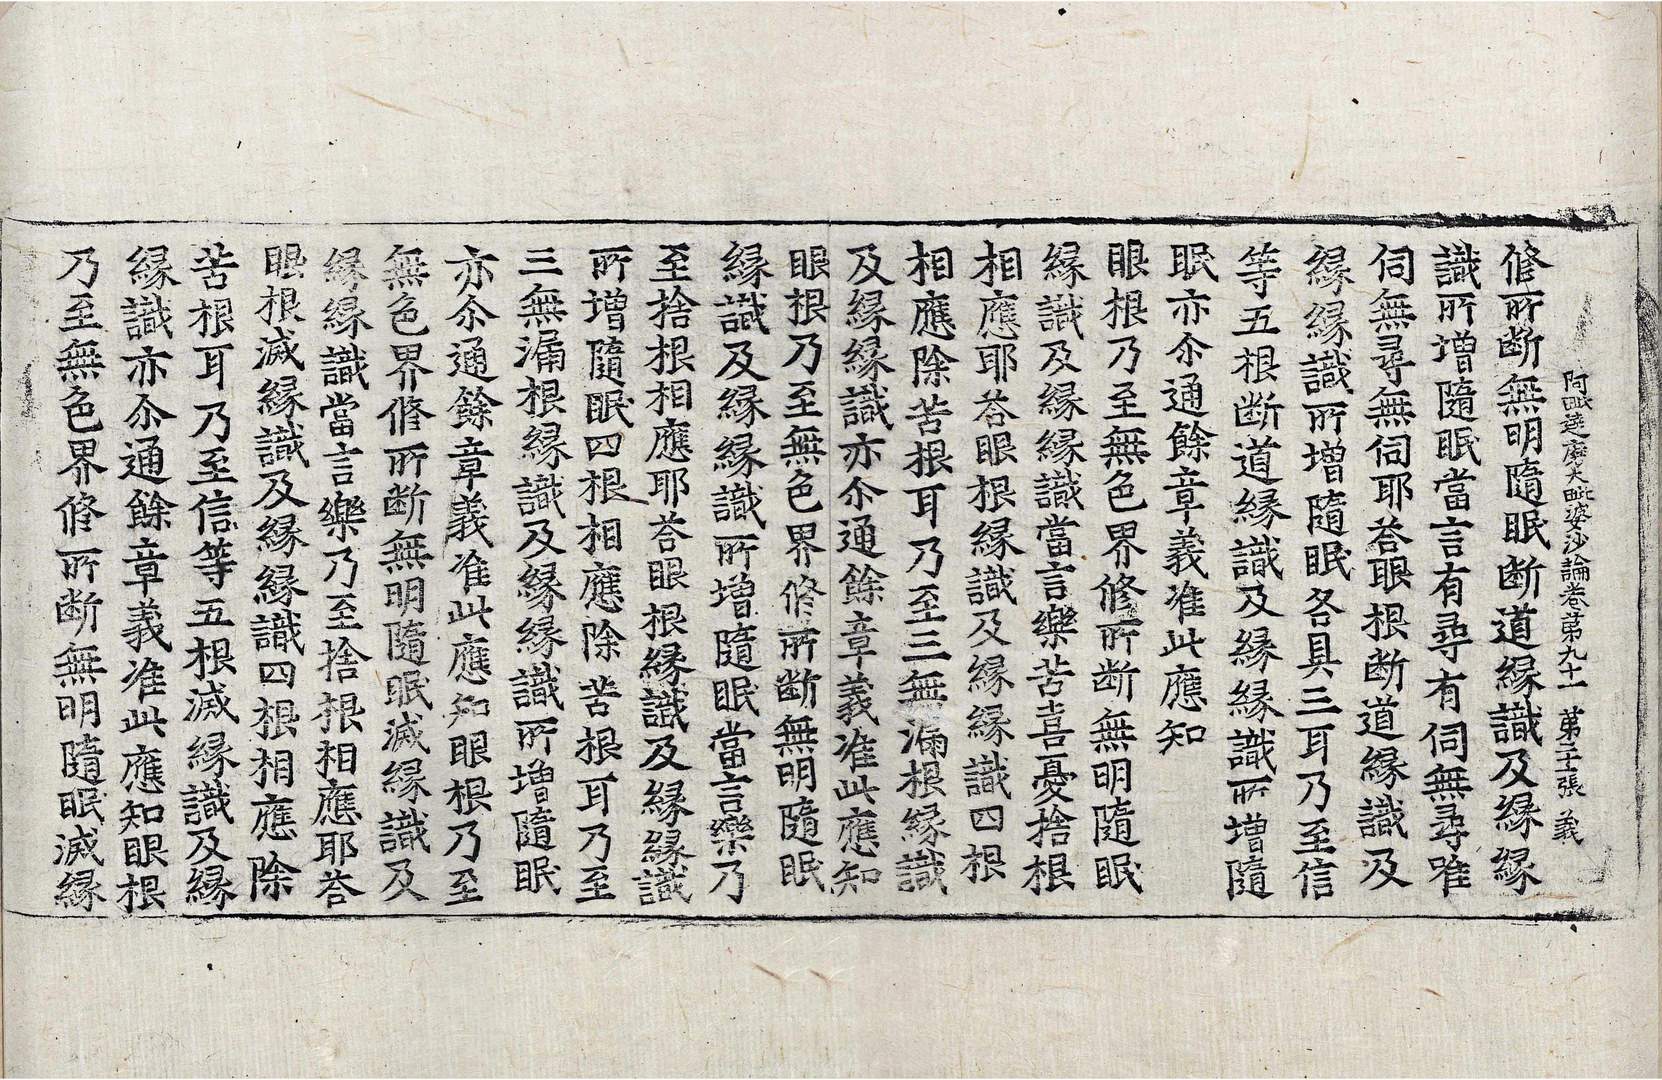 阿毗達磨大毗婆沙論卷第九十一 第二十張 義
修所断無明隨眠断道緣識及緣緣
識所增隨眠當言有尋有伺無尋唯
伺無尋無伺耶荅眼根断道緣識及
緣緣識所增隨眠各具三耳乃至信
等五根断道緣識及緣緣識所增隨
眠亦尒通餘章義准此應知
眼根乃至無色界修所断無明隨眠
緣識及緣緣識當言樂苦喜憂捨根
相應耶荅眼根緣識及緣緣識四根
相應除苦根耳乃至三無漏根緣識
及緣緣識亦尒通餘章義准此應知
眼根乃至無色界修所断無明隨眠
緣識及緣緣識所增隨眠當言樂乃
至捨根相應耶荅眼根緣識及緣緣識
所增隨眠四根相應除苦根耳乃至
三無漏根緣識及緣緣識所增隨眠
亦尒通餘章義准此應知眼根乃至
無色界修所断無明隨眠滅緣識及
緣緣識當言樂乃至捨根相應耶荅
眼根滅緣識及緣緣識四根相應除
苦根耳乃至信等五根滅緣識及緣
緣識亦尒通餘章義准此應知眼根
乃至無色界修所断無明隨眠滅緣